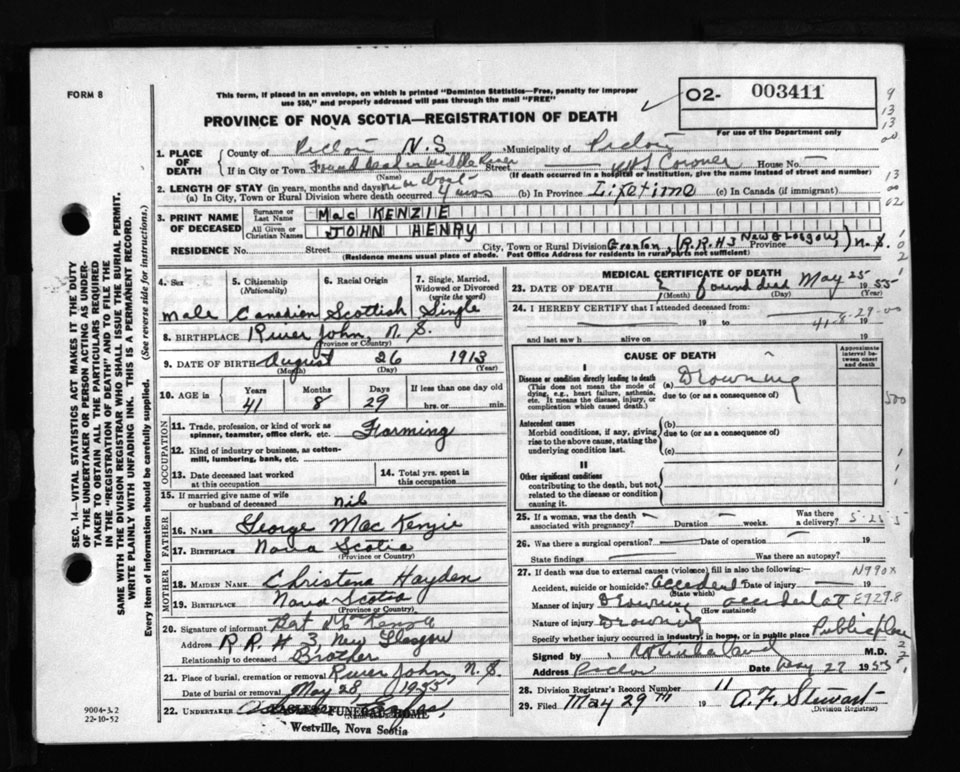 FORM 8
This form, if placed in an envelope, on which is printed "Dominion Statistics—Free, penalty for improper
use $50," and properly addressed will pass through the mail "FREE"
PROVINCE OF NOVA SCOTIA—REGISTRATION OF DEATH
O2- 003411
For use of the Department only
1. PLACE OF DEATH
County of Pictou N.S. Municipality of Pictou
If in City or Town Found dead in Middle River Street Coroner House No. —
(Name) (If death occurred in a hospital or institution, give the name instead of street and number)
2. LENGTH OF STAY (in years, months and days) on or about
(a) In City, Town or Rural Division where death occurred 4 mos (b) In Province Lifetime (c) In Canada (if immigrant)
3. PRINT NAME OF DECEASED
Surname or Last Name MacKENZIE
All Given or Christian Names JOHN HENRY
RESIDENCE No. Street City, Town or Rural Division Granton, (R.R#3 New Glasgow,) Province N.S.
(Residence means usual place of abode. Post Office Address for residents in rural parts not sufficient)
4. Sex male
5. Citizenship (Nationality) Canadian
6. Racial Origin Scottish
7. Single, Married, Widowed or Divorced (write the word) Single
8. BIRTHPLACE River John, N.S.
(Province or Country)
9. DATE OF BIRTH August 26 1913
(Month) (Day) (Year)
10. AGE in Years 41 Months 8 Days 29 If less than one day old hrs. or min.
OCCUPATION
11. Trade, profession, or kind of work as spinner, teamster, office clerk, etc. Farming
12. Kind of industry or business, as cotton-mill, lumbering, bank, etc.
13. Date deceased last worked at this occupation
14. Total yrs. spent in this occupation
15. If married give name of wife or husband of deceased nil
FATHER
16. NAME George MacKenzie
17. BIRTHPLACE Nova Scotia
(Province or Country)
MOTHER
18. MAIDEN NAME Christena Hayden
19. BIRTHPLACE Nova Scotia
(Province or Country)
20. Signature of informant Bert McKenzie
Address R.R.#3, New Glasgow
Relationship to deceased Brother
21. Place of burial, cremation or removal River John, N.S.
Date of burial or removal May 28, 1955
22. UNDERTAKER FUNERAL HOME
Westville, Nova Scotia
9004-3.2
22-10-52
MEDICAL CERTIFICATE OF DEATH
23. DATE OF DEATH found dead May 25 1955
(Month) (Day) (Year)
24. I HEREBY CERTIFY that I attended deceased from:
19 to 19
41-8-29-00
and last saw h alive on 19
CAUSE OF DEATH
Approximate interval between onset and death
I
Disease or condition directly leading to death (a) Drowning
(This does not mean the mode of dying, e.g., heart failure, asthenia, etc. It means the disease, injury, or complication which caused death.)
due to (or as a consequence of)
Antecedent causes
Morbid conditions, if any, giving rise to the above cause, stating the underlying condition last.
(b)
due to (or as a consequence of)
(c)
II
Other significant conditions
contributing to the death, but not related to the disease or condition causing it.
25. If a woman, was the death associated with pregnancy? — Duration — weeks. Was there a delivery? 5-25-5
26. Was there a surgical operation? — Date of operation — 19
State findings Was there an autopsy?
27. If death was due to external causes (violence) fill in also the following:— N990X
Accident, suicide or homicide? Accident Date of injury — 19
(State which)
Manner of injury Drowning accident E929.8
(How sustained)
Nature of injury Drowning
Specify whether injury occurred in industry, in home, or in public place Public place
Signed by M.D.
Address Pictou Date May 27 1955
28. Division Registrar's Record Number 11
29. Filed May 29th 19 A. F. Stewart
(Division Registrar)
SEC. 14—VITAL STATISTICS ACT MAKES IT THE DUTY
OF THE UNDERTAKER OR PERSON ACTING AS UNDER-
TAKER TO OBTAIN ALL THE PARTICULARS REQUIRED
IN THE "REGISTRATION OF DEATH" AND TO FILE THE
SAME WITH THE DIVISION REGISTRAR WHO SHALL ISSUE THE BURIAL PERMIT.
WRITE PLAINLY WITH UNFADING INK. THIS IS A PERMANENT RECORD.
Every item of information should be carefully supplied. (See reverse side for instructions.)